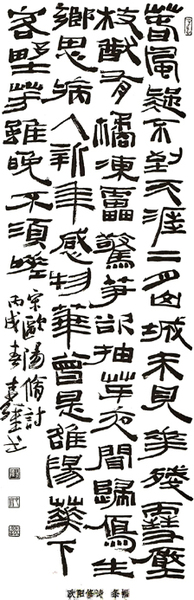 春風疑不到天涯二月山城未見華殘雪壓
枝猶有橘凍靁驚筍欲抽芽夜聞歸鴈生
鄉思病入新年感物華曾是雒陽華下
客野芳雖晚不須嗟
宋歐陽脩詩
丙戌春
欧阳修诗 条幅